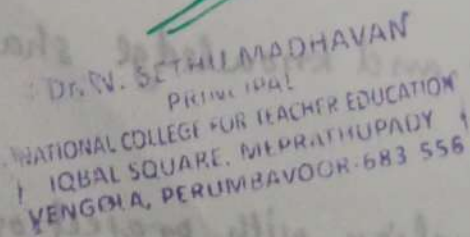 Dr. N. SETHU MADHAVAN
PRINCIPAL
NATIONAL COLLEGE FOR TEACHER EDUCATION
IQBAL SQUARE. MEPRATHUPADY
VENGOLA, PERUMBAVOOR-683 556